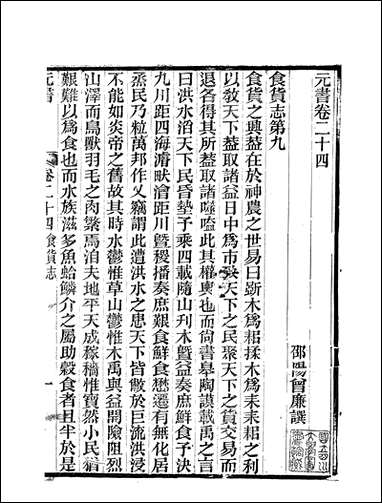 元書卷二十四
邵陽曾廉譔
食貨志第九
食貨之興葢在於神農之世易曰斲木爲耜揉木爲耒耒耜之利
以敎天下葢取諸益日中爲市致天下之民聚天下之貨交易而
退各得其所葢取諸噬嗑此其權輿也而尙書皋陶謨載禹之言
曰洪水滔天下民昏墊予乘四載隨山刋木曁益奏庶鮮食予決
九川距四海濬畎澮距川曁稷播奏庶艱食鮮食懋遷有無化居
烝民乃粒萬邦作乂竊謂此遭洪水之患天下皆散於巨流洪浸
不能如炎帝之舊故其時水鬱惟草山鬱惟木禹與益開險阻烈
山澤而鳥獸羽毛之肉繁焉洎夫地平天成稼穡惟寶然小民猶
艱難以爲食也而水族滋多魚蛤鱗介之屬助穀食者且半於是
元書
卷二十四食貨志